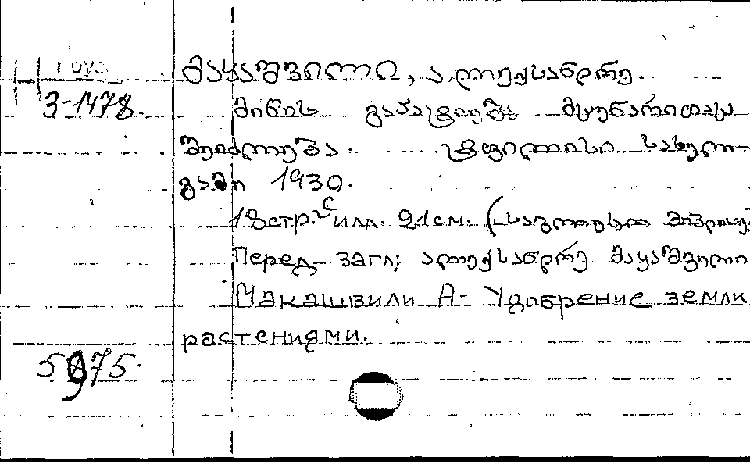 მაყაშვილი, ალექსანდრე.
3-1478.
მიწის გაპატივება მცენარეთა
შეიძლება. ტფილისი სახელ-
გამი 1930.
18 стр. с илл. 21 см. (სასოფლო
Перед загл: ალექსანდრე მაყაშვილი
Макашвили А- Удобрение земли
растениями.
5975.